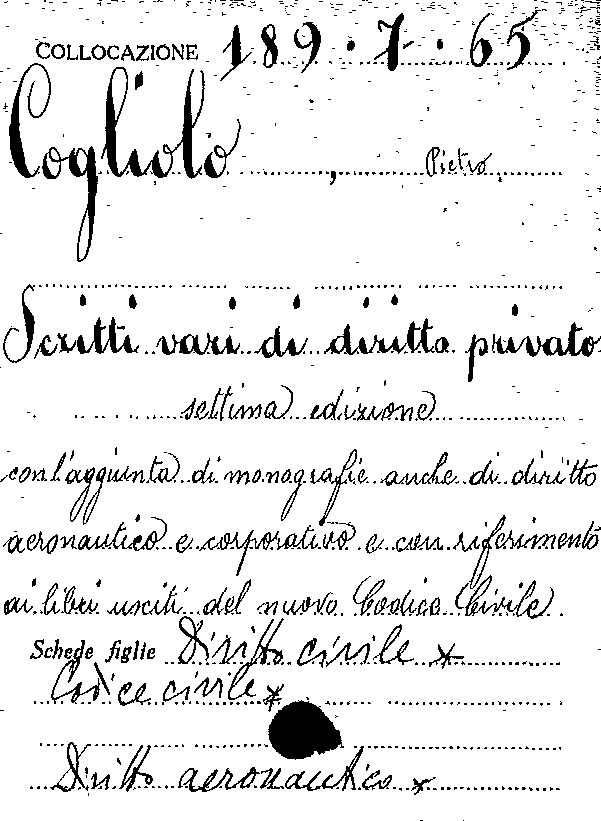 COLLOCAZIONE 189.7.65
Cogliolo, Pietro
Scritti vari di diritto privato
settima edizione
con l'aggiunta di monografie anche di diritto
aeronautico e corporativo e con riferimento
ai libri usciti del nuovo Codice Civile
Schede figlie Diritto civile x
Codice civile x
Diritto aeronautico x